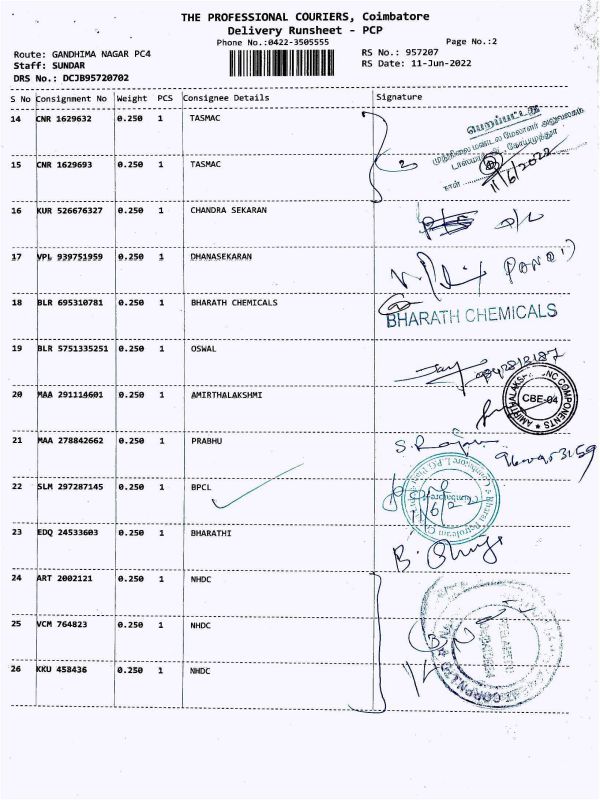 THE PROFESSIONAL COURIERS, Coimbatore
Delivery Runsheet - PCP
Phone No.:0422-3505555
Page No.:2
Route: GANDHIMA NAGAR PC4
RS No.: 957207
Staff: SUNDAR
RS Date: 11-Jun-2022
DRS No.: DCJB95720702
S No Consignment No Weight PCS Consignee Details Signature
14 CNR 1629632 0.250 1 TASMAC
பெறப்பட்டது
முதுநிலை மண்டல மேலாளர் அலுவலகம்
நாள்
11/6/2022
15 CNR 1629693 0.250 1 TASMAC
16 KUR 526676327 0.250 1 CHANDRA SEKARAN
17 VPL 939751959 0.250 1 DHANASEKARAN
18 BLR 695310781 0.250 1 BHARATH CHEMICALS
BHARATH CHEMICALS
19 BLR 5751335251 0.250 1 OSWAL
20 MAA 291114601 0.250 1 AMIRTHALAKSHMI
CBE-04
21 MAA 278842662 0.250 1 PRABHU
22 SLM 297287145 0.250 1 BPCL
23 EDQ 24533603 0.250 1 BHARATHI
24 ART 2002121 0.250 1 NHDC
25 VCM 764823 0.250 1 NHDC
26 KKU 458436 0.250 1 NHDC